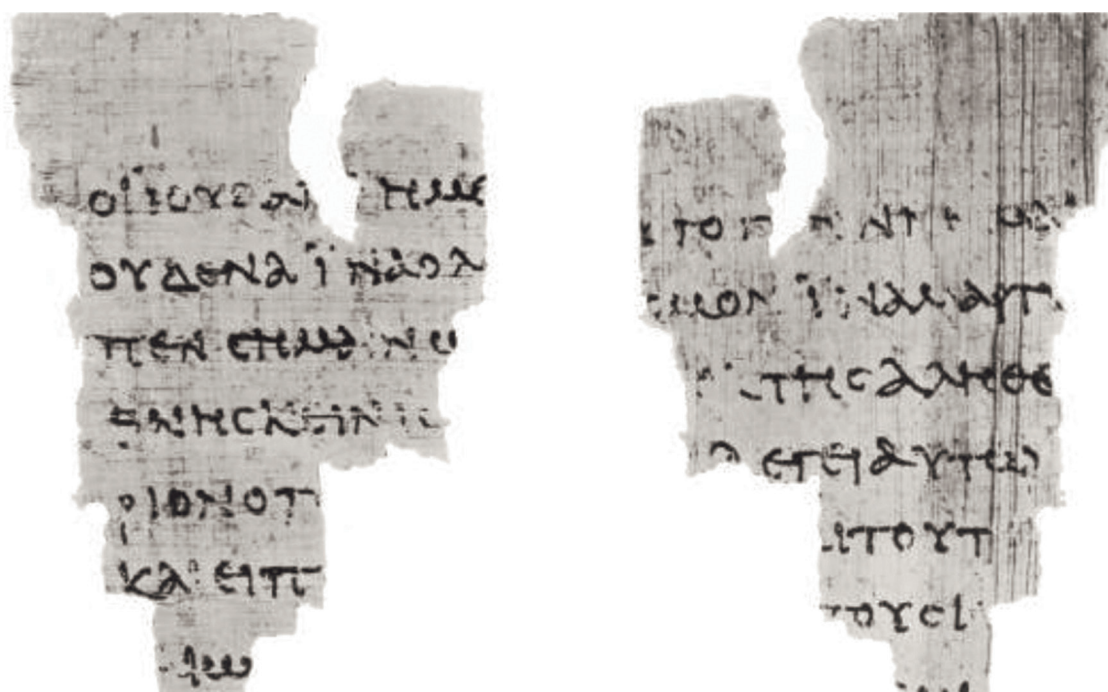 ΟΙ ΙΟΥΔΑΙ ΗΜΕ
ΟΥΔΕΝΑ ΪΝΑ Ο Λ
ΠΕΝ ϹΗΜΑΙΝΩ
ΘΝΗϹΚΕΙΝ ΙϹ
ΡΙΟΝ Ο Π
ΚΑΙ ΕΙΠ
ΑΙΩ
ΤΟ Γ ΝΝΗΜΑΙ
ϹΜΟΝ ΪΝΑ ΜΑΡΤΥ
ΤΗϹ ΑΛΗΘΕ
ΛΕΓΕΙ ΑΥΤΩ
ΑΙ ΤΟΥΤ
ΤΟΥϹ Ι